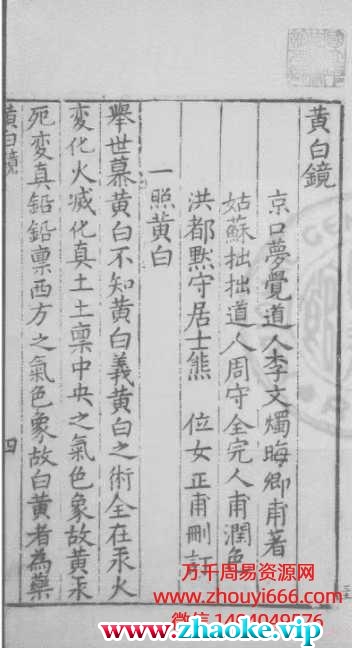 黄白鏡
京口夢覺道人李文燭晦卿甫著
姑蘇拙拙道人周守全完人甫潤色
洪都㸃守居士熊 位女正甫刪訂
一照黄白
舉世慕黄白不知黄白義黄白之術全在汞火
変化火滅化真土土禀中央之氣色象故黄汞
死変真鉛鉛禀西方之氣色象故白黄者為藥
黄白鏡
四
万千周易资源网
www.zhouyi666.com
微信 1494049576
www.zhaoke.vip